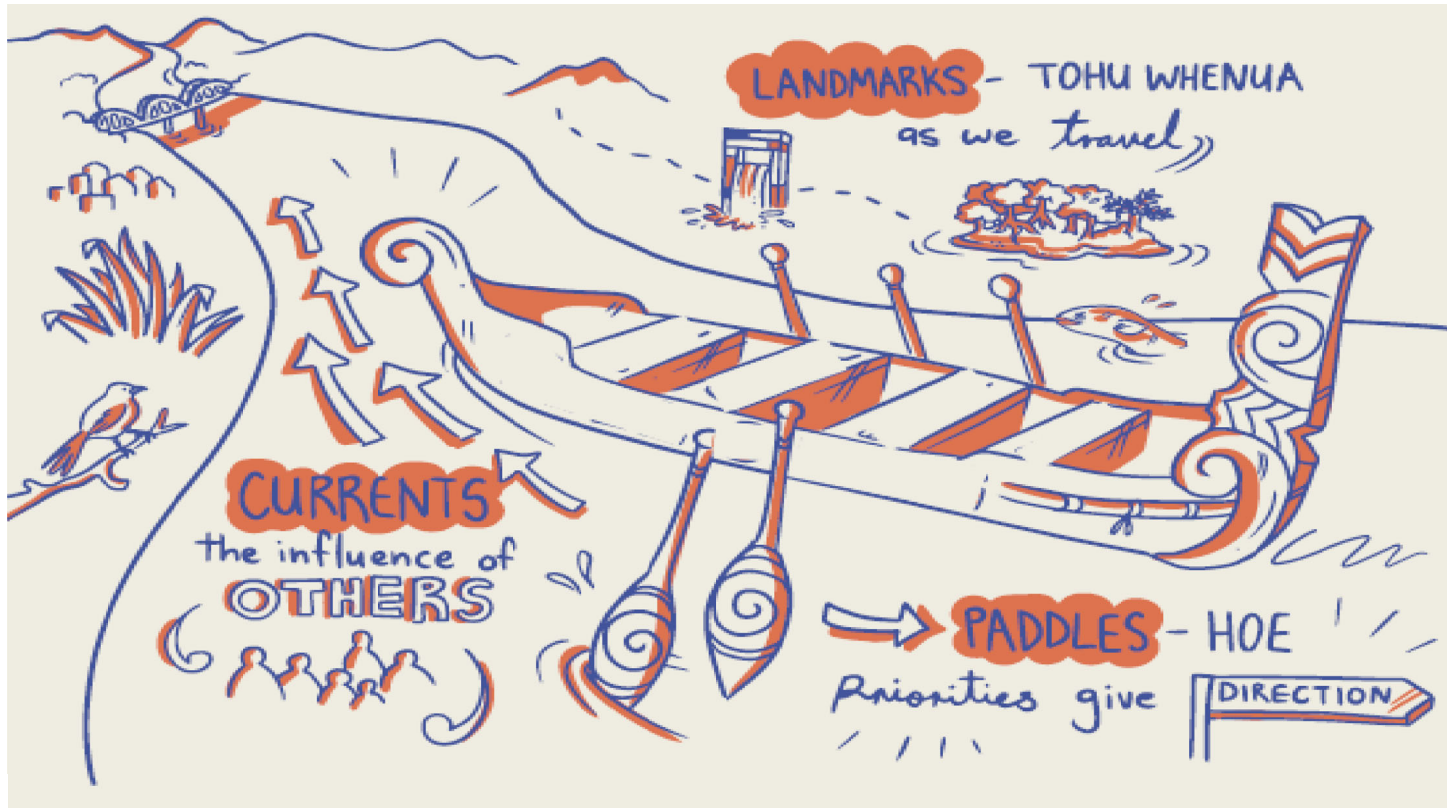 LANDMARKS - TOHU WHENUA
as we travel
CURRENTS
the influence of
OTHERS
PADDLES - HOE
Priorities give DIRECTION